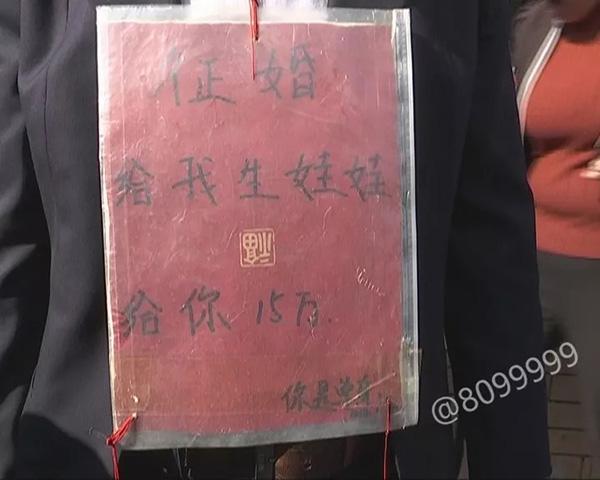 征婚
给我生娃娃
给你15万.
你是单身
@8099999